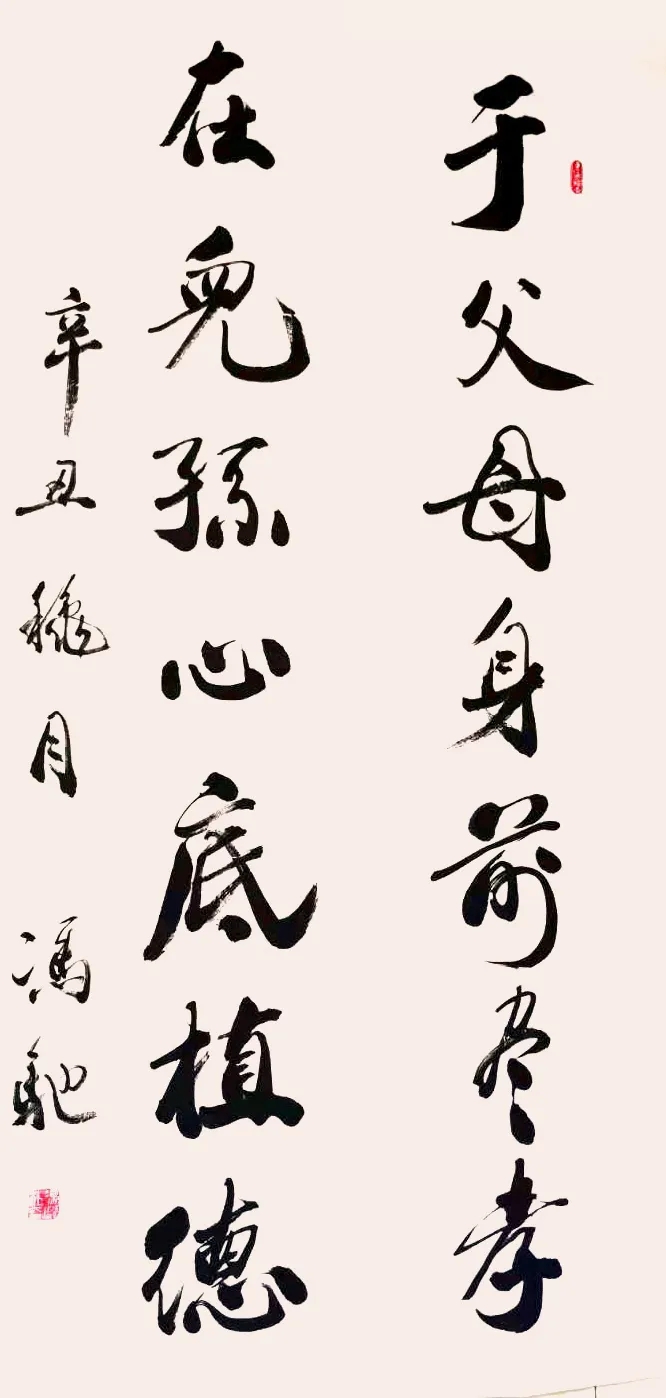 于父母身前尽孝
在兒孫心底植德
辛丑穐月 馮馳